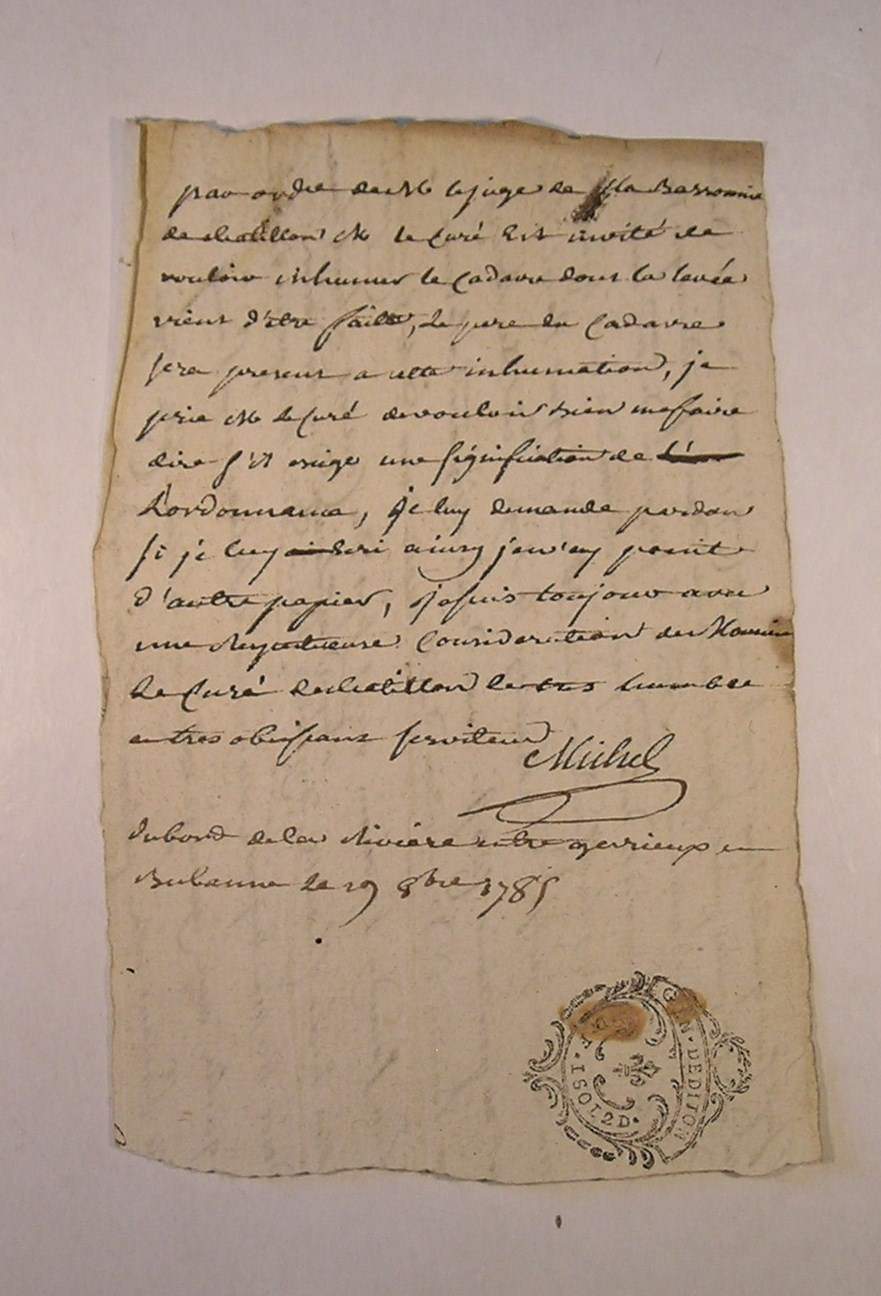 par ordre de M le juge de la Barronnie
de chatillon M le Curé Est invité de
vouloir inhumer le Cadavre dont la levée
vient d'etre faitte, le pere du Cadavre
sera present a cette inhumation, je
prie M le Curé de vouloir bien me faire
dire s'il exige une signification de
L'ordonnance, je luy demande pardon
si je luy ecri ainsy je n'ey point
d'autre papier, je suis toujour avec
une respectueuse Consideration de Monsieur
Le Curé de chatillon le tres humble
et tres obeissant serviteur
Michel
du bord de la Riviere entre gerrieux et
Bubanne le 19 8bre 1785
GEN. DEDIJON
1SOL2D.